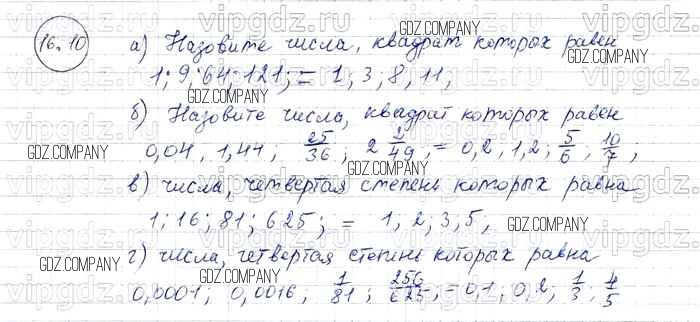 16.10
а) Назовите числа, квадрат которых равен
1; 9; 64; 121; = 1, 3, 8, 11,
б) Назовите числа, квадрат которых равен
0,04, 1,44; 25/36; 2 2/49, = 0,2, 1,2; 5/6, 10/7;
в) числа, четвертая степень которых равна
1; 16; 81; 625; = 1, 2, 3, 5,
г) числа, четвертая степень которых равна
0,0001; 0,0016, 1/81; 256/625; = 0,1, 0,2, 1/3, 4/5
GDZ.COMPANY
GDZ.COMPANY
GDZ.COMPANY
GDZ.COMPANY
GDZ.COMPANY
GDZ.COMPANY
GDZ.COMPANY
GDZ.COMPANY